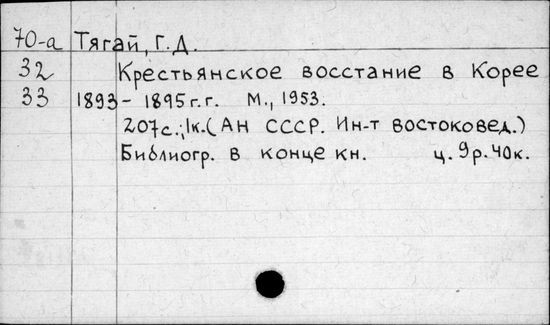 70-а Тягай, Г.Д.
32 Крестьянское восстание в Корее
33 1893 - 1895 г.г. М., 1953.
207с.; 1к. (АН СССР. Ин-т востоковед.)
Библиогр. в конце кн. ц. 9р. 40к.